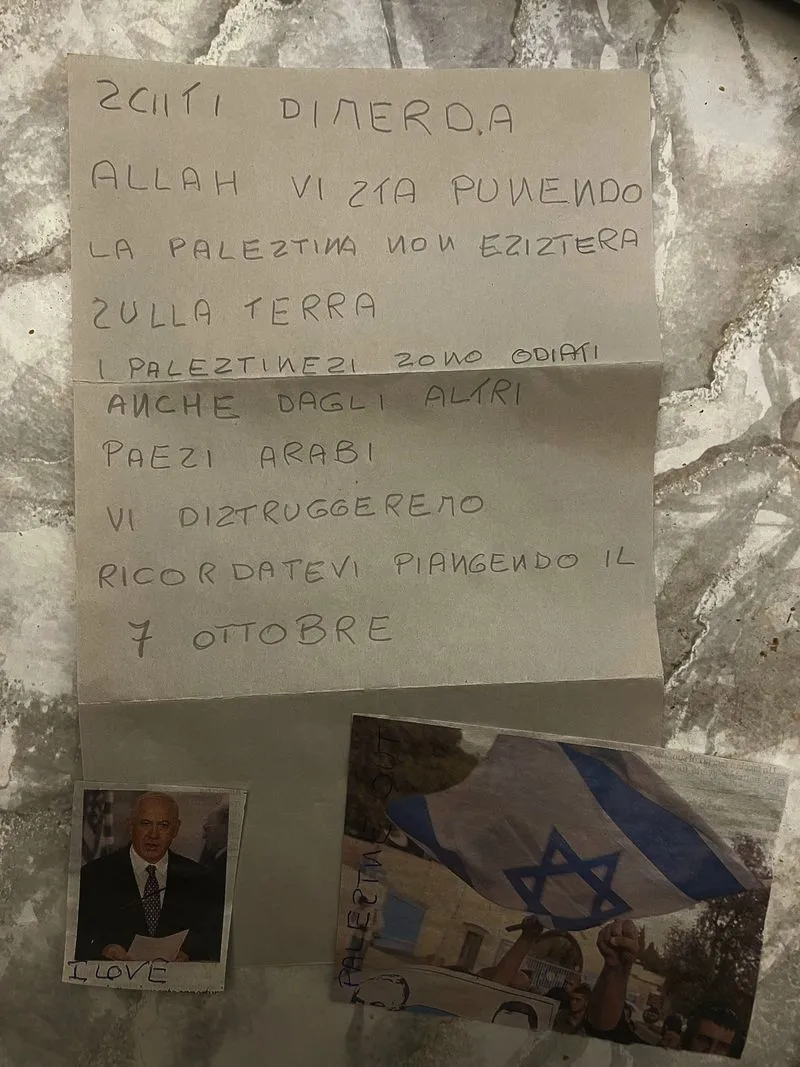 ZCIITI DIMERD.A
ALLAH VI ZTA PUNENDO
LA PALEZTINA NON EZIZTERA
ZULLA TERRA
I PALEZTINEZI ZONO ODIATI
ANCHE DAGLI ALTRI
PAEZI ARABI
VI DIZTRUGGEREMO
RICORDATEVI PIANGENDO IL
7 OTTOBRE
I LOVE
PALEZTINE OUT